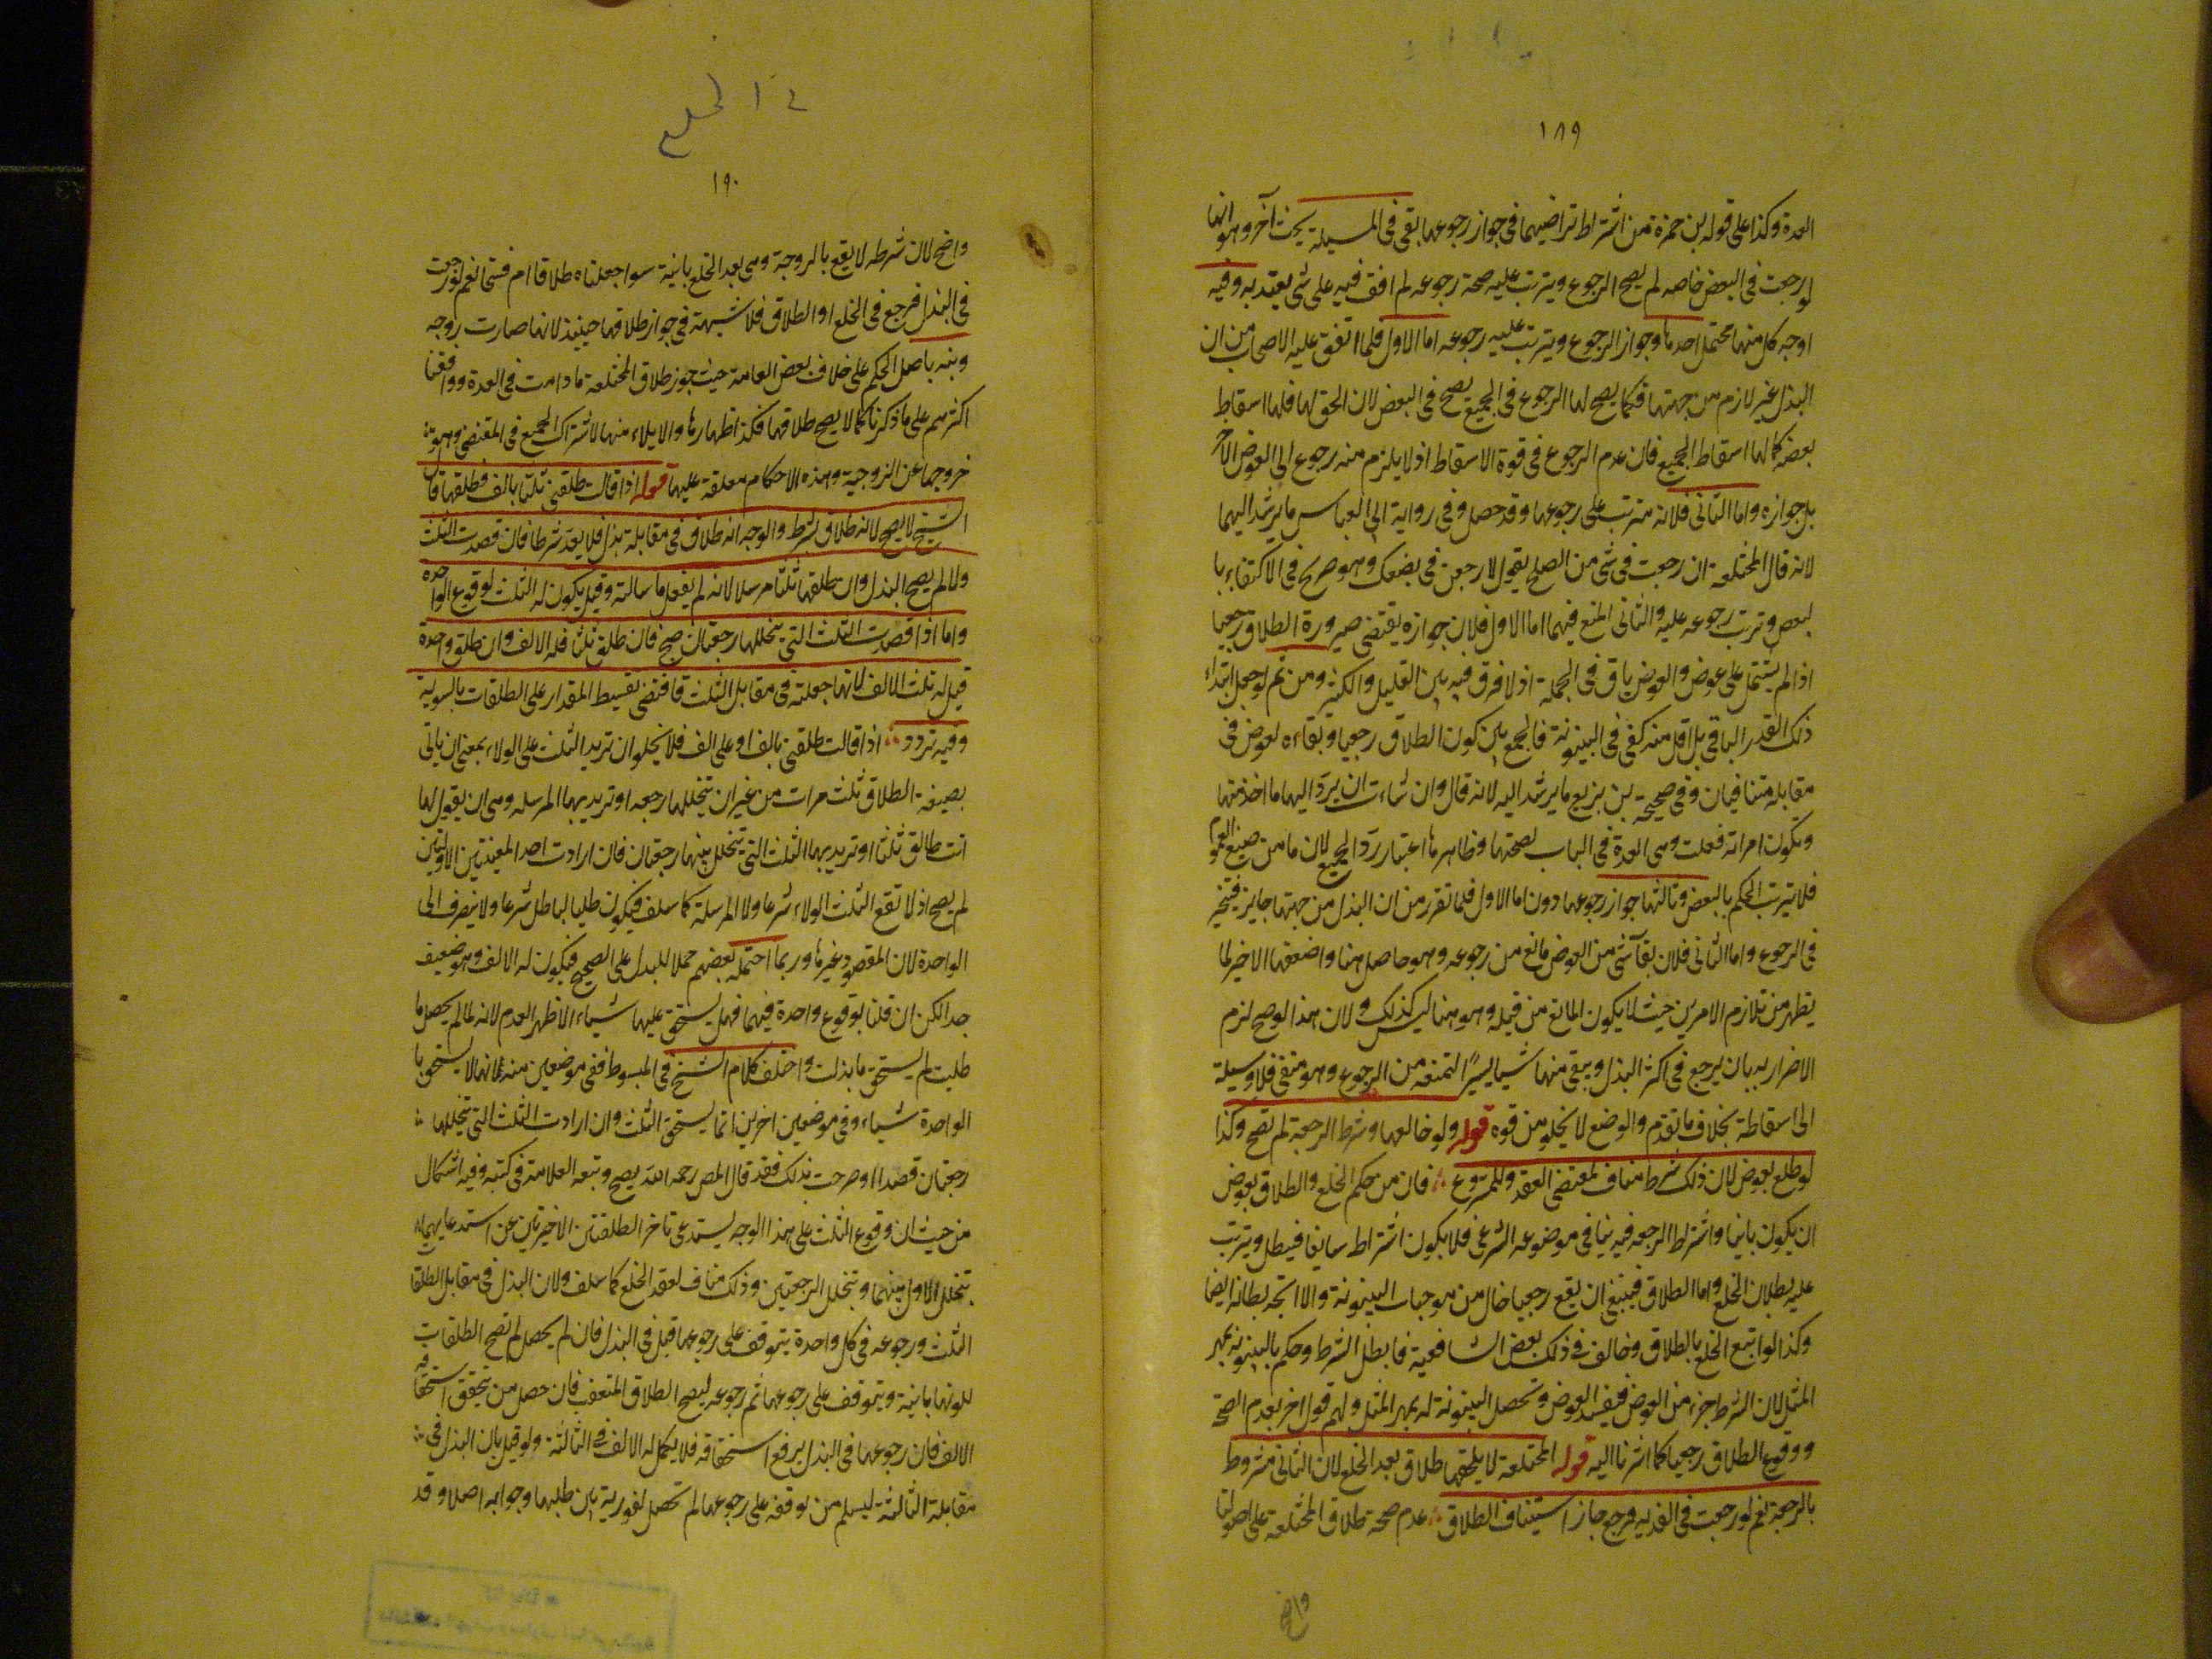 ١٨٩
العدة وكذا على قوله بن حمزة من اشتراط تراضيهما في جواز رجوعها بقى في المسيلة بحث آخر وهو انها
لو رجعت في البعض خاصه لم يصح الرجوع ويترتب عليه صحة رجوعه لم اقف فيه على شئ يعتد به وفيه
اوجه كل منها محتمل احدها وجواز الرجوع ويترتب عليه رجوعه اما الاول فلما اتفق عليه الاصحاب من ان
البذل غير لازم من جهتها فكما يصح لها الرجوع في الجميع يصح في البعض لان الحق لها فلها اسقاط
بعضه كما لها اسقاط الجميع فان عدم الرجوع في قوة الاسقاط اذ لا يلزم منه رجوع الى العوض الاخر
بل جوازه واما الثاني فلانه مترتب على رجوعها وقد حصل وفي رواية ابي العباس ما يرشد اليهما
لانه قال المختلعة ان رجعت في شئ من الصلح يقول لارجعن في بضعك وهو صريح في الاكتفاء با
لبعض وترتب رجوعه عليه والثاني المنع فيهما اما الاول فلان جوازه يقتضى صيرورة الطلاق رجعيا
اذا لم يشتمل على عوض والعوض باق في الجملة اذ لا فرق فيه بين القليل والكثير ومن ثم لو جعل ابتداء
ذلك القدر الباقي بل اقل منه كفى في البينونة فالجمع بين كون الطلاق رجعيا وبقاءه لعوض في
مقابله متنافيان وفي صحيحة بن بزيع ما يرشد اليه لانه قال وان شاءت ان يرد اليها ما اخذ منها
وتكون امراته فعلت وهى العدة في الباب لصحتها وظاهرها اعتبار رد الجميع لان ما من صيغ العموم
فلا يترتب الحكم بالبعض وثالثها جواز رجوعها دون اما الاول فلما تقرر من ان البذل من جهتها جايز فيتخير
في الرجوع واما الثاني فلان بقآ شئ من العوض مانع من رجوعه وهو حاصل هنا واضعفها الاخير لما
يظهر من تلازم الامرين حيث لا يكون المانع من قبله وهو هنا ليس كذلك ولان هذا لو صح لزم
الاضرار به بان يرجع في اكثر البذل ويبقى منها شيا يسيرا لتمنعه من الرجوع وهو منفى فلا وسيلة
الى اسقاطه بخلاف ما تقدم والوضع لا يخلو من قوه قوله ولو خالعها وشرط الرجعة لم يصح وكذا
لو طلع بعوض لان ذلك شرط مناف لمقتضى العقد وللمشروع فان من حكم الخلع والطلاق بعوض
ان يكون باينا واشتراط الرجعه فيه ينافي موضوعه الشرعي فلا يكون اشتراط سايغا فيبطل ويترتب
عليه بطلان الخلع واما الطلاق فينبغ ان يقع رجعيا خال من موجبات البينونة والا اتجه بطلانه ايضا
وكذا لو اتبع الخلع بالطلاق وخالف في ذلك بعض الشافعية فابطل الشرط وحكم بالبينونة بمهر
المثل لان الشرط جزء من العوض فيفسد العوض وتحصل البينونة له بمهر المثل ولهم قول اخر بعدم الصحة
ووقوع الطلاق رجعيا كما اشرنا اليه قوله المختلعة لا يلحقها طلاق بعد الخلع لان الثاني مشروط
بالرجعة نعم لو رجعت في الفديه فرجع جاز استيناف الطلاق عدم صحة طلاق المختلعة على اصولنا
واضح
في الخلع
١٩٠
واضح لان شرطه لا يقع بالزوجة وهى بعد الخلع باينة سوا جعلناه طلاقا ام فسخا نعم لو رجعت
في البذل فرجع في الخلع او الطلاق فلا شبهة في جواز طلاقها حينئذ لانها صارت زوجه
وبنه باصل الحكم على خلاف بعض العامة حيث جوز طلاق المختلعة ما دامت في العدة ووافقنا
اكثرهم على ما ذكرنا كما لا يصح طلاقها فكذا ظهارها والايلاء منها لاشتراك الجميع في المقتضى وهو
خروجها عن الزوجية وهذه الاحكام معلقة عليها قوله اذا قالت طلقني ثلثا بالف فطلقها قال
الشيخ لا يصح لانه طلاق بشرط والوجه انه طلاق في مقابلة بذل فلا يعد شرطا فان قصدت الثلث
ولما لم يصح البذل وان طلقها ثلثا مرسلا لانه لم يفعل ما سالته وقيل يكون له الثلث لوقوع الواحده
واما اذا قصدت الثلث التي يتخللها رجعتان صح فان طلق ثلثا فله الالف وان طلق واحدة
قيل له ثلث الالف لانها جعلته في مقابل الثلث فاقتضى تقسيط المقدار على الطلقات بالسوية
وفيه تردد اذا قالت طلقني بالف او على الف فلا يخلو ان تريد الثلث على الولاء بمعنى ان ياتى
بصيغة الطلاق ثلث مرات من غير ان يتخللها رجعه او تريد بها المرسله وهى ان يقول لها
انت طالق ثلثا او تريد بها الثلث التي يتخلل بينها رجعتان فان ارادت احد المعنيين الاولين
لم يصح اذ لا تقع الثلث الولاء شرعا ولا المرسلة كما سلف فيكون طلبا لباطل شرعا ولا ينصرف الى
الواحدة لان المقصود غيرها وربما احتمله بعضهم حملا للبذل على الصحيح فيكون له الالف وهو ضعيف
جدا لكن ان قلنا بوقوع واحدة فيهما فهل يستحق عليها شياء الاظهر العدم لانه لما لم يحصل ما
طلبت لم يستحق ما بذلت واختلف كلام الشيخ في المبسوط ففي موضعين منه انه لا يستحق با
الواحدة شياء وفي موضعين اخرين انما يستحق الثلث وان ارادت الثلث التي يتخللها
رجعتان قصدا او صرحت بذلك فقد قال المص رحمه الله يصح وتبعه العلامة في كتبه وفيه اشكال
من حيث ان وقوع الثلث على هذا الوجه يستدعى تاخر الطلقتين الاخيرتين عن استدعايهما
بتخلل الاول بينهما وتخلل الرجعتين وذلك مناف لعقد الخلع كما سلف ولان البذل في مقابل الطلقا
الثلث ورجوعه في كل واحدة يتوقف على رجوعها قبل في البذل فان لم يحصل لم تصح الطلقات
لكونها باينة ويتوقف على رجوعها ثم رجوعه ليصح الطلاق المتعقب فان حصل من يتحقق استحقاقه
الالف فان رجوعها في البذل يرفع استحقاقه فلا يكمل له الالف في الثالثة ولو قيل بان البذل في
مقابلة الثالثة ليسلم من توقفه على رجوعها لم تحصل لفورية بين طلبها وجوابه اصلا وقد